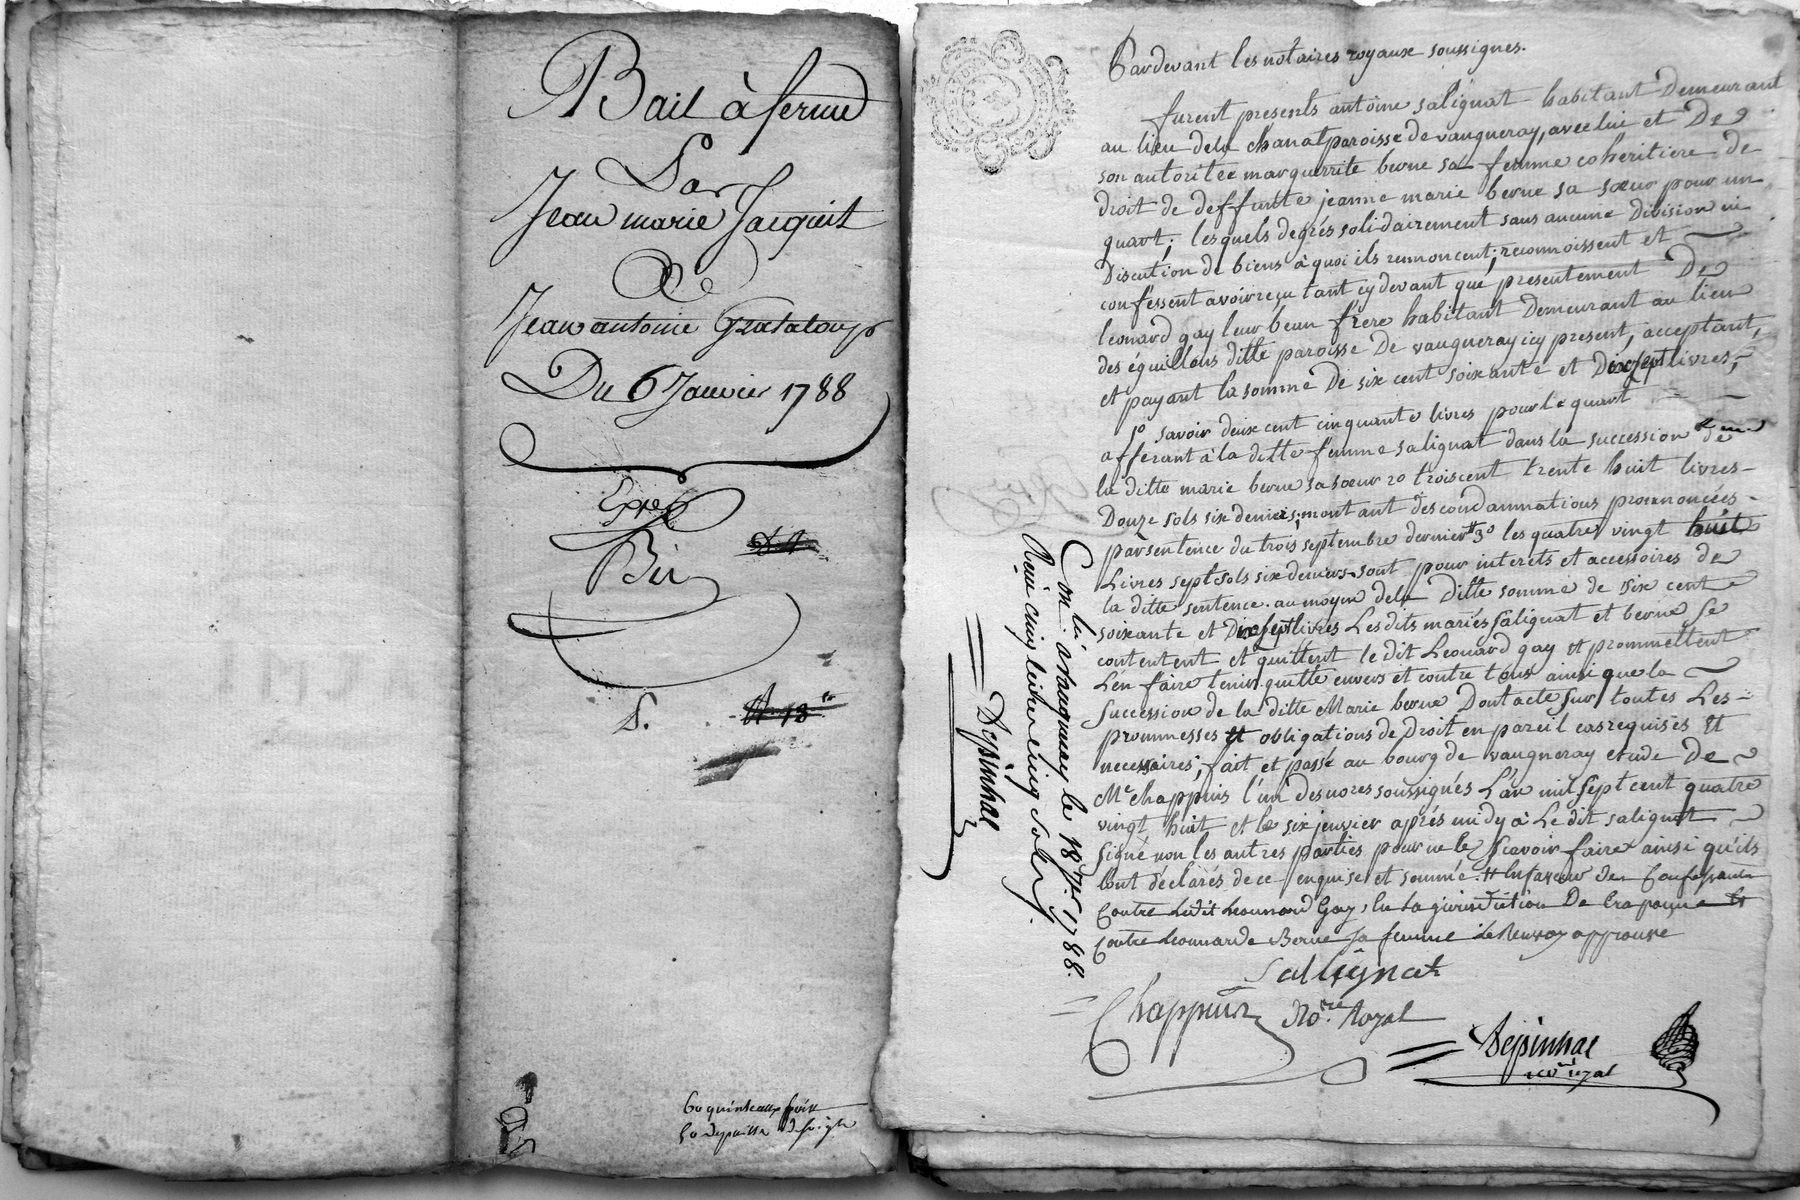 Bail à ferme
Par
Jean marie Jacquet
De
Jean antoine Grataloup
Du 6 Janvier 1788
Expé
60 quinteaux foin
50 de paille de seigle
Pardevant les notaires royaux soussignes.
furent presents antoine salignat habitant Demeurant
au lieu dela chanal paroisse de vaugneray, avec lui et De
son autorité marguerite berne sa femme coheritiere de
droit de deffunte jeanne marie berne sa sœur pour un
quart; lesquels degrés solidairement sans aucune Division ni
Discution de biens à quoi ils renoncent; reconnoissent et
confessent avoir reçu tant cy devant que presentement De
leonard gay leur beau frere habitant Demeurant au lieu
des éguillons ditte paroisse De vaugneray icy present, acceptant,
et payant la somme De six cent soixante et Dixsept livres;
1º savoir deux cent cinquante livres pour le quart
afferant à la ditte femme salignat dans la succession de
la ditte marie berne sa sœur 2º troiscent trente huit livres
Douze sols six deniers; montant des condamnations prononcées
par sentence du trois septembre dernier 3º les quatre vingt huit
Livres sept sols six deniers sont pour interets et accessoires de
la ditte sentence. au moyen dela Ditte somme de six cent
soixante et Dixsept livres Les dits mariés salignat et berne se
contentent et quittent le dit Leonard gay et promettent
L'en faire tenir quitte envers et contre tous ainsi que la
succession de la ditte Marie berne Dont acte sur toutes Les
prommesses et obligations de Droit en pareil cas requises et
necessaires; fait et passé au bourg de vaugneray etude De
Me chappuis l'un des nores soussignés L'an mil sept cent quatre
vingt huit et le six jenvier après midy à Le dit salignat
signé non les autres parties pour ne le scavoir faire ainsi qu'ils
l'ont déclarés de ce enquise et sommé. H En faveur des Confessants
Contre Ledit Leonnard Gay, En La jurisdiction De Craponne et
Contre Leonnarde Berne sa femme Le Renvoy approuve
Sallignat
Chappuis Nore Royal
Depinhac
nore royal
Con. lé à Vaugneray le 18 1788.
Reçu cinq livres cinq sols
Depinhac